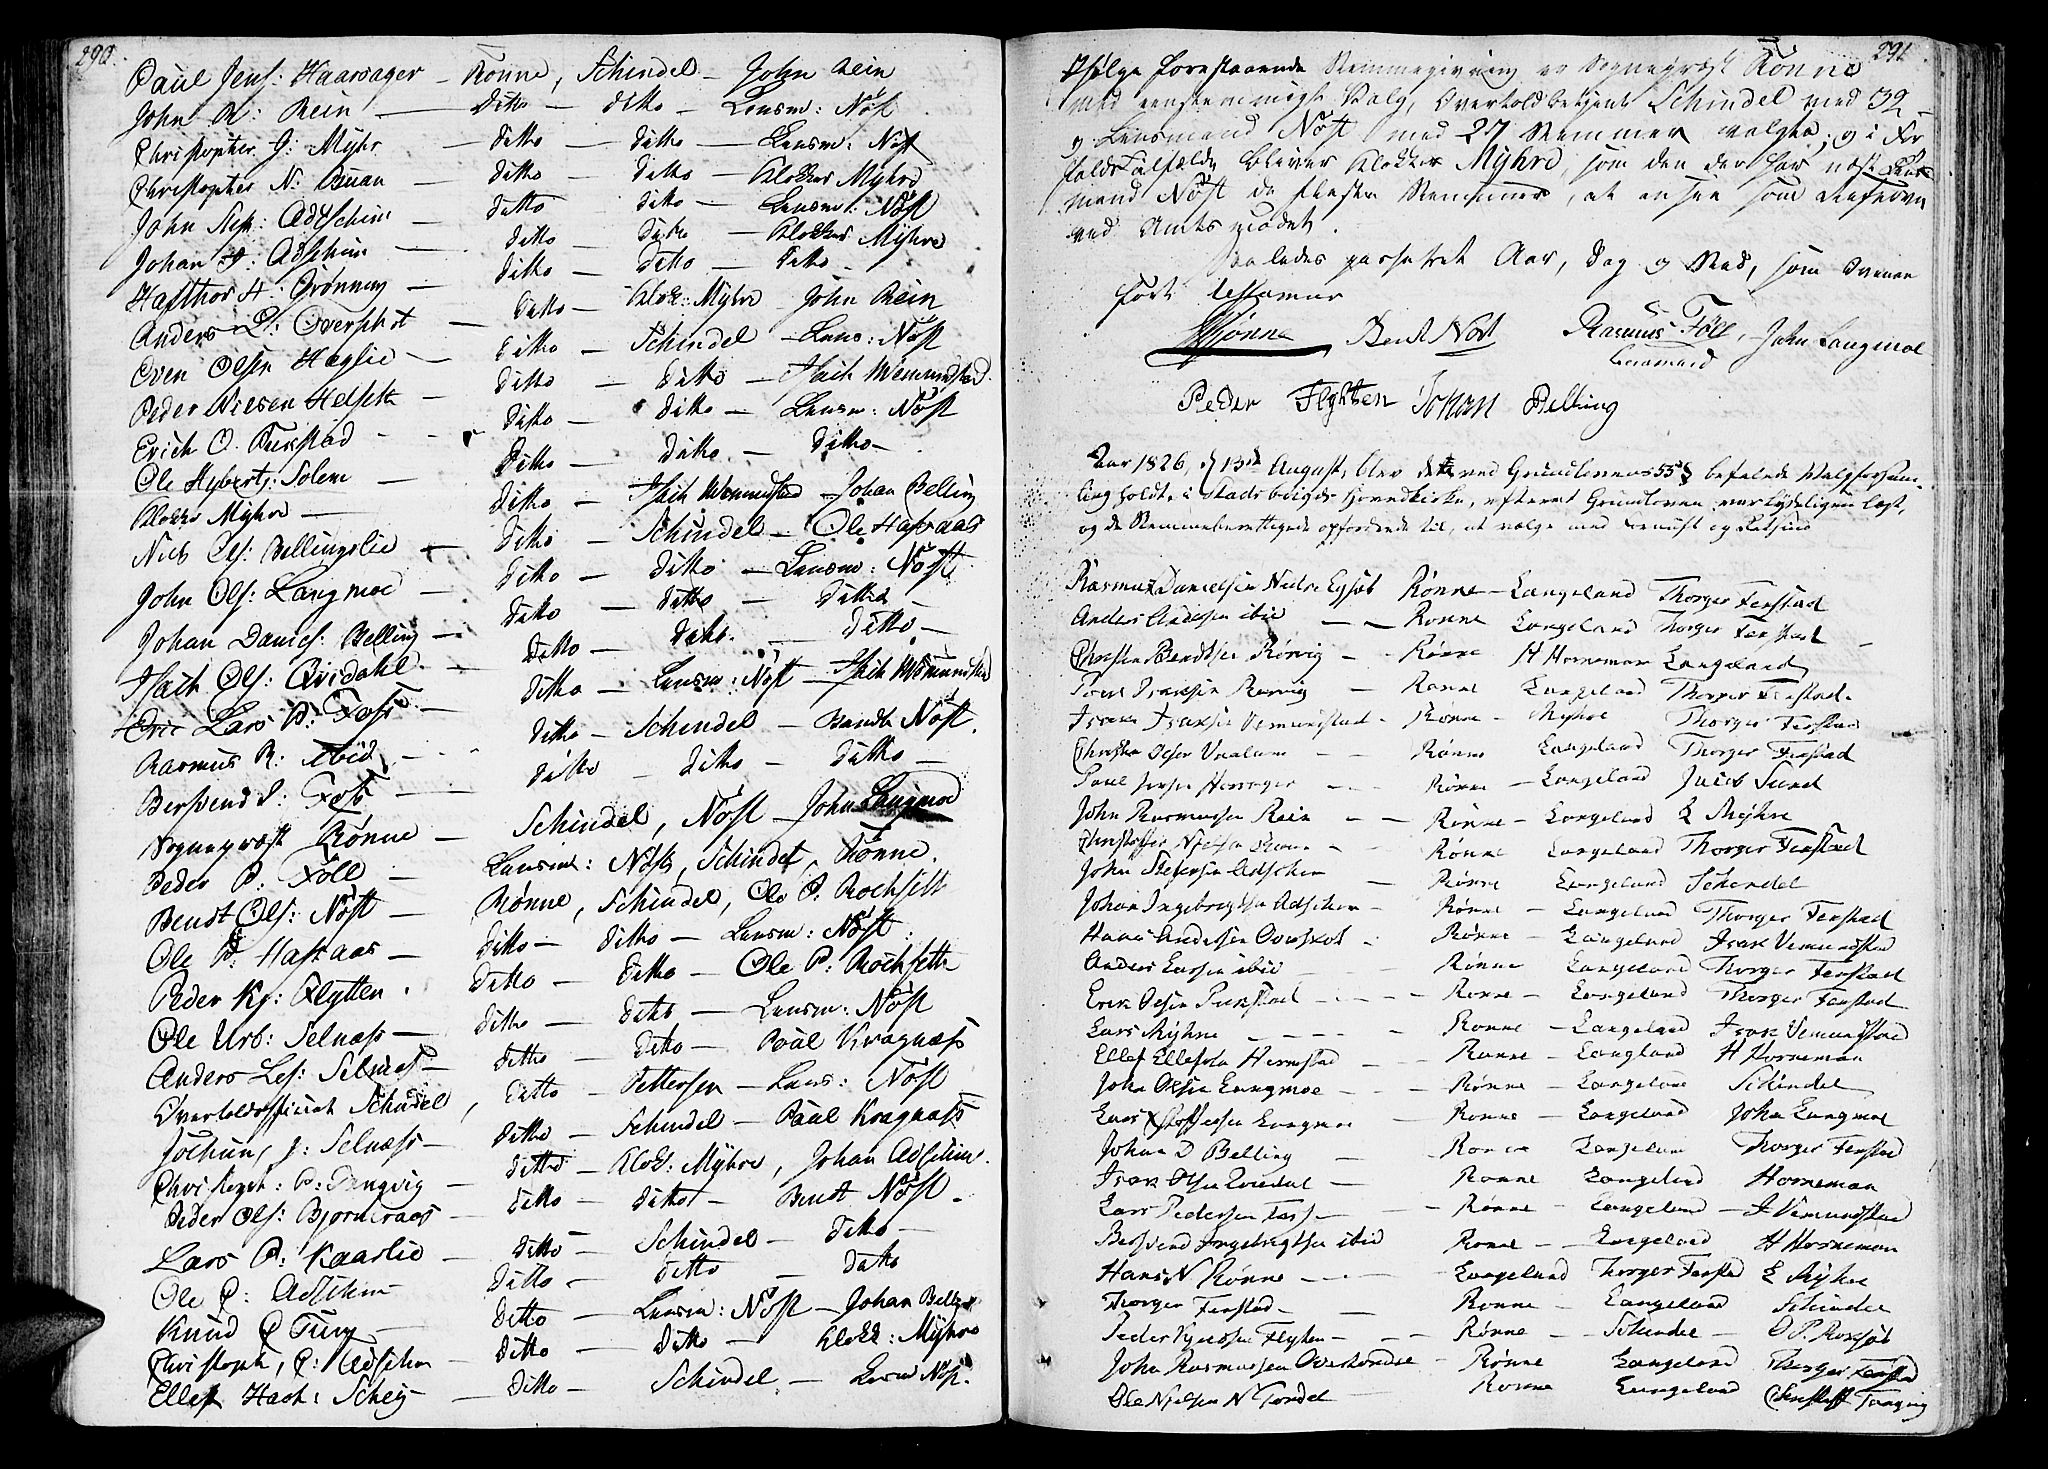 290.
Paul Jens: Haarsager – Rönne, Schindel – John Rein
John R: Rein – Ditto – Ditto – Lensm: Nöst
Christopher J: Myhr – Ditto – Ditto – Lensm: Nöst
Christopher N: Buan – Ditto – Ditto – Klokker Myhre
John Adschim – Ditto – Ditto – Lensm: Nöst
Johan Adschim – Ditto – Ditto – Klokker Myhre
Hafthor H: Grönning – Ditto – Ditto – Ditto
Anders L: Overskot – Ditto – Klok: Myhre – John Rein
Oven Olsen Hoglie – Ditto – Schindel – Lens: Nöst
Peder Nielsen Helseth – Ditto – Ditto – Isach Wemundstad
Erich O. Furstad – Ditto – Ditto – Lensm: Nöst
Ole Hybertz: Solem – Ditto – Ditto – Ditto –
Klokker Myhre – Ditto – Isach Wemundstad – Johan Belling
Niels Ols: Bellingslie – Ditto – Schindel – Ole Hafsaas
John Ols: Langmoe – Ditto – Ditto – Lensm: Nöst
Johan Daniels: Belling – Ditto – Ditto – Ditto –
Isach Ols: Qvidahl – Ditto – Ditto – Ditto –
Lars P: Foss – Ditto – Lensm: Nöst – Isach Wemundstad
Rasmus R: ibid – Ditto – Schindel – Bendt Nöst.
Bersvend I: Foss – Ditto – Ditto – Ditto –
Sognepræst Rönne – Schindel, Nöst – John Langmoe
Peder P: Föll – Lensm: Nöst, Schindel, Rönne.
Bendt Ols: Nöst – Rönne, Schindel, Ole P: Rochseth
Ole P: Hafsaas – Ditto – Ditto – Lensm: Nöst
Peder Kj: Flytten – Ditto – Ditto – Ole P: Rochseth
Ole Urb: Selnæss – Ditto – Ditto – Lensm: Nöst
Anders Les: Selnæs – Ditto – Ditto – Paul Kragnæss
Overtoldofficiant Schindel, Ditto – Pettersen – Lens: Nöst
Jochum J: Selnæss – Ditto – Schindel – Paul Kragnæss
Christoph: P: Tangvig – Ditto – Klok: Myhre, Johan Adschim.
Peder Ols: Bjørneraas – Ditto – Ditto – Bendt Nöst.
Lars P: Kaarlie – Ditto – Schindel – Ditto –
Ole P: Adschim – Ditto – Ditto – Ditto
Knud P: – Ditto – Lensm: Nöst – Johan Belling
Christoph, P: Adschim – Ditto – Ditto – Klok: Myhre
Ellef Hach: Scheig – Ditto – Schindel – Lensm Nöst.
291.
Ifölge forestaaende Stemmegivning er Sognepræst Rönne
med eenstemmigt Valg, Overtoldbetjent Schindel med 32
og Lensmand Nöst med 27 Stemmer valgte; og i For
faldstilfælde bliver Klokker Myhre, som den der har næst Lens
mand Nöst de fleste Stemmer, at ansee som
ved Amtsmödet.
Saaledes passeret Aar, Dag og Sted, som ovenan
fört testamur
Rönne Bendt Nöst Rasmus Föll, John Langmoe
Lensmand
Peder Flytten Johan Belling
Aar 1826, d 13de August, blev det ved Grundlovens 55 § befalede Valgforsam-
ling holdt, i Stadsböigds Hovedkirke, efterat Grundloven var tydeligen læst,
og de Stemmeberettigede opfordrede til, at vælge med Fornuft og
Rasmus Danielsen Nedre Egseb Rønne – Langeland Thorger Fenstad
Anders Andersen ibid – – Rønne Langeland Thorger Fenstad –
Christen Bendtsen Rørvig – Rønne H Horneman Langeland
Isaksen Rørvig – Rønne Langeland Thorger Fenstad.
Isak Isaksen Vemundstad – Rønne – Myhre Thorger Fenstad
Olsen – – Rønne Langeland Thorger Fenstad
Paul Jensen Horsager – – Rønne – Langeland Jacob Sund
John Rasmussen Rein – – Rønne – Langeland L Myhre
Christoffer Nielsen – Rønne Langeland Thorger Fenstad
John Adschim – Rønne Langeland Schindel
Johan Ingebrigtsen Adschem – Rønne – Langeland Thorger Fenstad
Hans Andersen Overskot – Rønne – Langeland Isak Vemundstad
Anders Larsen ibid – Rønne Langeland Thorger Fenstad
Erik Olsen Furstad – – – – Rønne – Langeland Thorger Fenstad
Lars Myhre – – – – Rønne – Langeland Isak Vemundstad
Ellef Ellefsen Hermstad – Rønne – Langland H Horneman
John Olsen Langmoe – Rønne – Langeland Schindel
Lars Langmoe – Rønne – Langeland John Langmoe
Johan D Belling – Rønne Langeland Thorger Fenstad
Isak Olsen Qvidal – Rønne Langeland Horneman
Lars Pedersen Foss – – Rønne – Langeland – I Vemundstad
Bersvend Ingebrigtsen ibid Rønne – – Langeland H Horneman
Hans N Rønne – – – Langeland Thorger Fenstad L Myhre
Thorger Fenstad – – Rønne – Langeland Schindel
Peder Flyten – – – Rønne – Schindel – O P Roksæt
John Rasmussen Overlandet – Rønne Langeland Thorger Fenstad
Ole Nielsen N Tøndel Rønne Langeland Christoff Tangvig